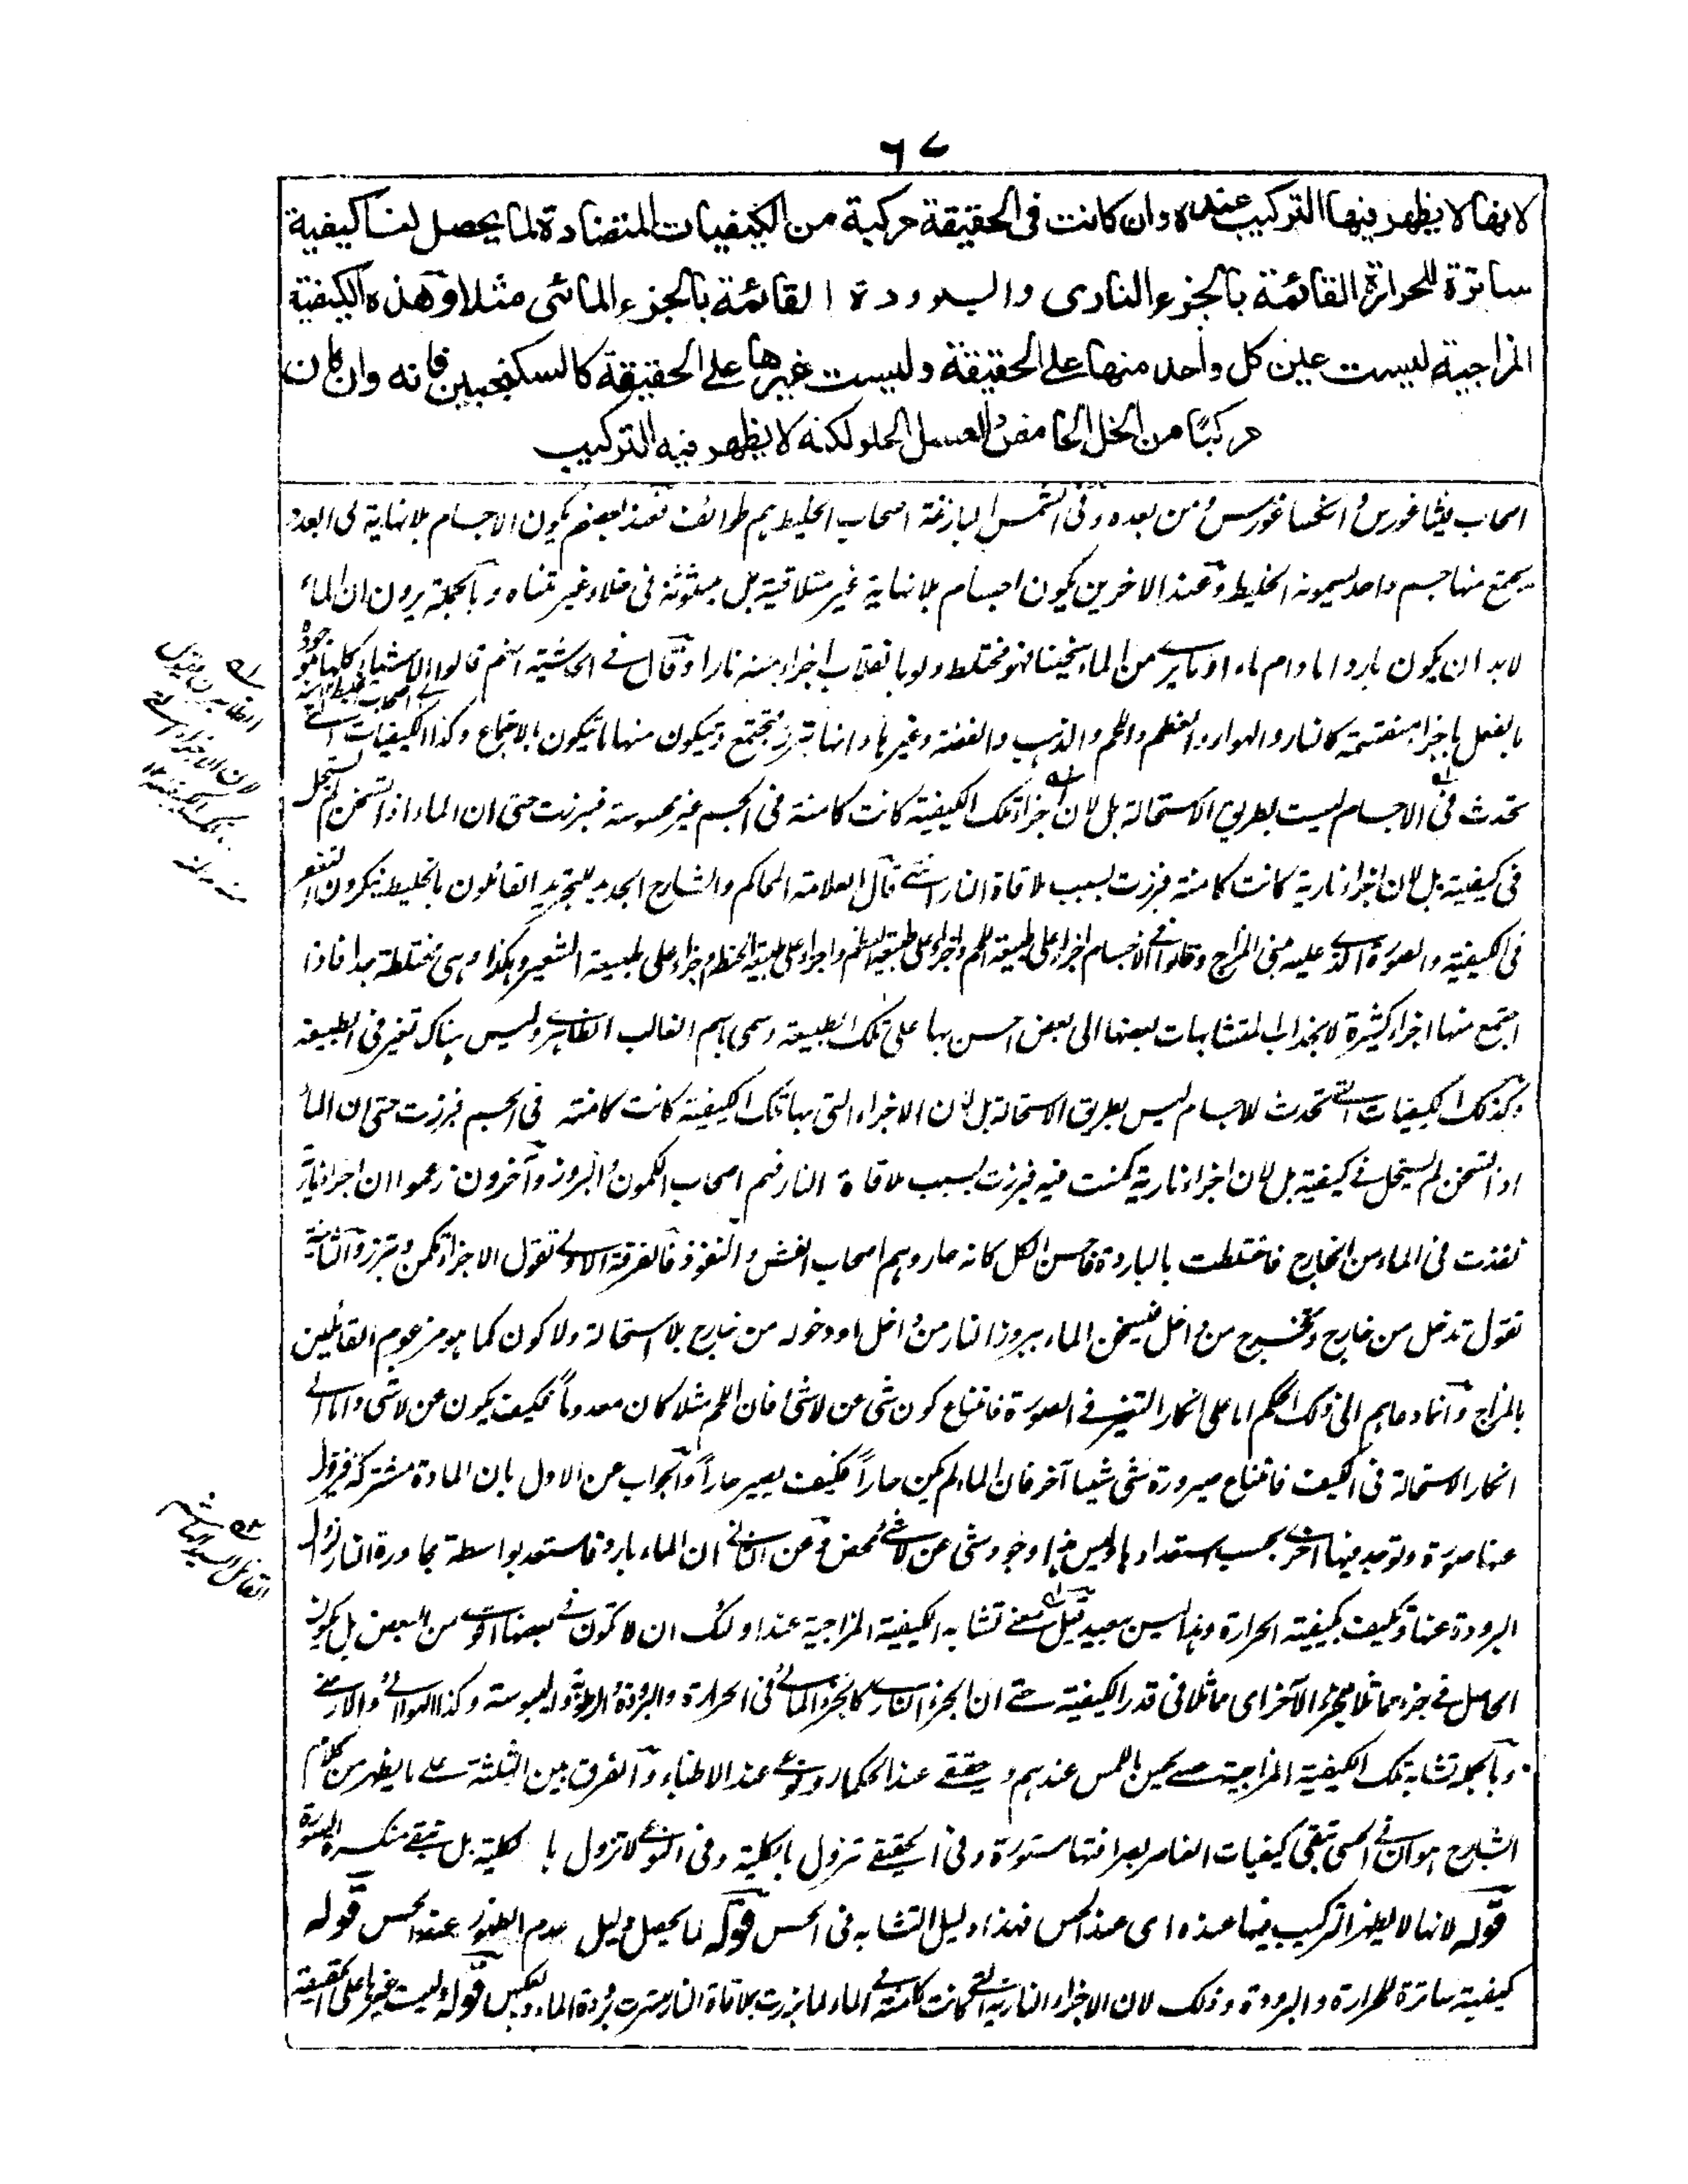 ٦٧
لانها لا يظهر فيها التركيب عنده وان كانت فى الحقيقة مركبة من الكيفيات المتضادة لما يحصل لها كيفية
ساترة للحرارة القائمة بالجزء النارى والبرودة القائمة بالجزء المائى مثلا وهذه الكيفية
المزاجية ليست عين كل واحد منها على الحقيقة وليست غيرها على الحقيقة كالسكنجبين فانه وان كان
مركبًا من الخل الحامض والعسل الحلو لكنه لا يظهر فيه التركيب
اصحاب فيثاغورس وانكساغورس ومن بعده وفى الشمس البازغة اصحاب الخليط هم طوائف فعند بعضهم يكون الاجسام بلانهاية فى العدد
يجتمع منها جسم واحد يسمونه الخليط وعند الاخرين يكون اجسام بلا نهاية غير متلاقية بل مبثوثة فى خلاء غير متناه وبالجملة يرون ان الماء
لابد ان يكون باردا مادام ماء او ما يرى من الماء سخينا فهو مختلط ولو بانقلاب اجزاء منه نارا وقال فى الحاشية انهم قالوا الاشياء كلها موجودة
بالفعل باجزاء منقسمة كالنار والهواء والعظم واللحم والذهب والفضة وغيرها وانها تبرز فتجتمع وتكون منها ما يكون بالاجتماع وكذا الكيفيات التى
تحدث فى الاجسام ليست بطريق الاستحالة بل لان اجزاء تلك الكيفية كانت كامنة فى الجسم غير محسوسة فبرزت حتى ان الماء اذا تسخن لم يستحل
فى كيفية بل لان اجزاء نارية كانت كامنة فبرزت بسبب ملاقاة النار انتهى قال العلامة المحاكم والشارح الجديد للتجريد القائلون بالخليط ينكرون التغير
فى الكيفية والصورة الذى عليه مبنى المزاج وقالوا فى الاجسام اجزاء على طبيعة اللحم واجزاء على طبيعة العظم واجزاء على طبيعة الحنطة واجزاء على طبيعة الشعير وهكذا وهى مختلطة جدا فاذا
اجتمع منها اجزاء كثيرة لانجذاب المتشابهات بعضها الى بعض احس بها على تلك الطبيعة وسمى باسم الغالب الظاهر وليس هناك تغير فى الطبيعة
وكذلك الكيفيات التى تحدث للاجسام ليس بطريق الاستحالة بل لان الاجزاء التى بها تلك الكيفية كانت كامنة فى الجسم فبرزت حتى ان الماء
اذا تسخن لم يستحل فى كيفيته بل لان اجزاء نارية كمنت فيه فبرزت بسبب ملاقاة النار فهم اصحاب الكمون والبروز وآخرون زعموا ان اجزاء نارية
نفذت فى الماء من الخارج فاختلطت بالباردة فاحس الكل كانه حار وهم اصحاب الفشو والنفوذ فالفرقة الاولى تقول الاجزاء تكمن وتبرز والثانية
تقول تدخل من خارج وتخرج من داخل فيسخن الماء ببروز النار من داخل او دخوله من خارج بلا استحالة ولا كون كما هو مزعوم القائلين
بالمزاج وانما دعاهم الى ذلك الحكم اما على انكار التغير فى الصورة فامتناع كون شئ عن لاشئ فان اللحم مثلا كان معدوماً فكيف يكون عن لاشئ واما فى
انكار الاستحالة فى الكيف فامتناع صيرورة شئ شيئا آخر فان الماء لم يكن حاراً فكيف يصير حاراً والجواب عن الاول بان المادة مشتركة فيزول
عنها صورة وتوجد فيها اخرى بحسب استعدادها وليس هذا وجود شئ عن لا شئ محض وعن الثانى ان الماء بارد فاستعد بواسطة مجاورة النار لزوال
البرودة عنها وتكيف بكيفيته الحرارة وهذا ليس ببعيد قيل معنى تشابه الكيفية المزاجية عند اولئك ان لا تكون فى بعضها اقوى من البعض بل يكون
الحاصل فى جزء مماثلا للجزء الآخر اى مماثلا فى قدر الكيفية حتى ان الجزء النارى كالجزء المائى فى الحرارة والبرودة والرطوبة واليبوسة وكذا الهوائى والارضى
وبالجملة تشابه تلك الكيفية المزاجية حسى بحس باللمس عندهم وحقيقى عند الحكماء ونوعى عند الاطباء والفرق بين الثلثة على ما يظهر من كلام
الشارح هو ان فى الحسى تبقى كيفيات العناصر بصرافتها مستورة وفى الحقيقى تزول بالكلية وفى النوعى لا تزول بالكلية بل تبقى منكسرة الصورة
قوله لانها لا يظهر التركيب فيها عنده اى عند الحس فهذا دليل التشابه فى الحس قوله لما يحصل دليل عدم الظهور عند الحس قوله
كيفية ساترة للحرارة والبرودة وذلك لان الاجزاء النارية التى كانت كامنة فى الماء لما برزت بملاقاة النار سترت برودة الماء وبالعكس قوله وليست غيرها على الحقيقة